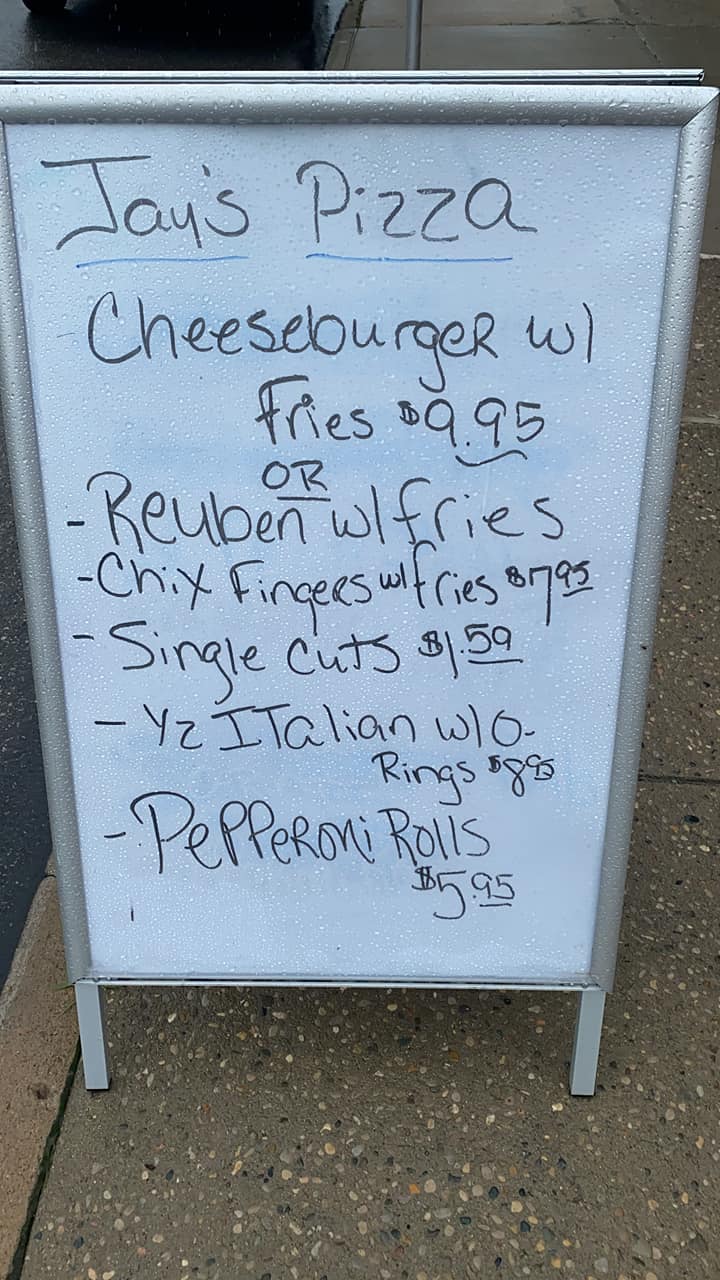 Jay's Pizza
Cheeseburger w/
fries $9.95
OR
- Reuben w/fries
- Chix Fingers w/fries $7.95
- Single cuts $1.59
- 1/2 ITalian w/O-
Rings $8.95
- PePPeRoni Rolls
$5.95